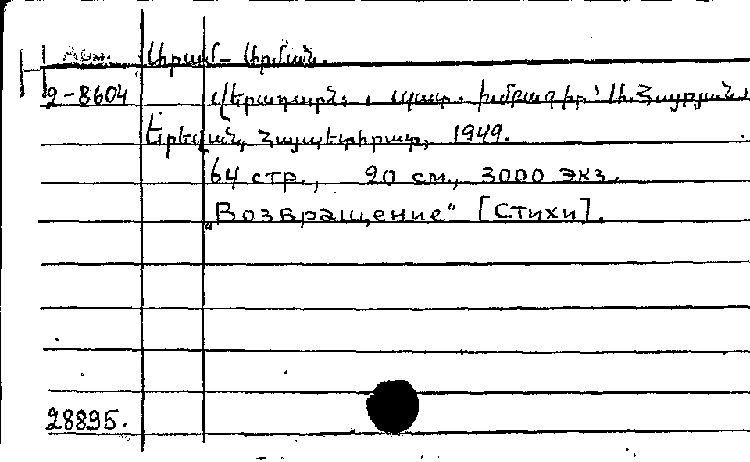 Արամ-Արման.
2-8604 Վերադարձ: , պատ. խմբագիր՝ Ս. Հայրյան.
Երևան, Հայպետհրատ, 1949.
64 стр., 20 см., 3000 экз.
„Возвращение“ [Стихи].
28895.